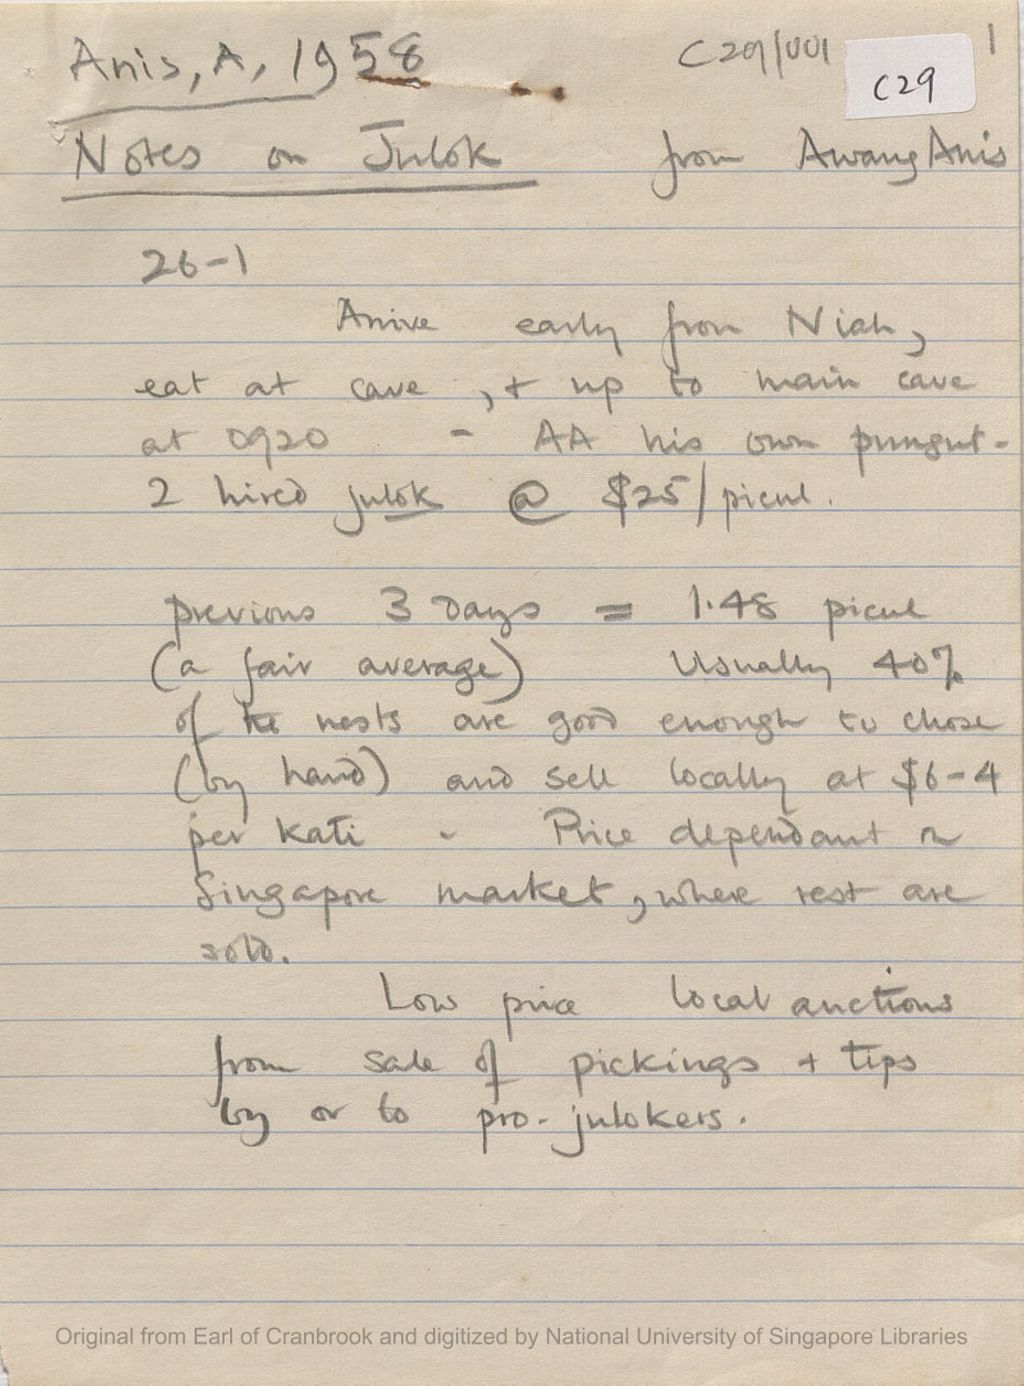 Anis, A, 1958
C29/001
C29
1
Notes on Julok from Awang Anis
26-1
Arrive early from Niah,
eat at cave, + up to main cave
at 0920 - AA his own pungut-
2 hired julok @ $25/picul.
previous 3 Days = 1.48 picul
(a fair average) Usually 40%
of the nests are good enough to chose
(by hand) and sell locally at $6-4
per kati - Price dependant on
Singapore market, where rest are
sold.
Low price local auctions
from sale of pickings + tips
by or to pro-julokers.
Original from Earl of Cranbrook and digitized by National University of Singapore Libraries